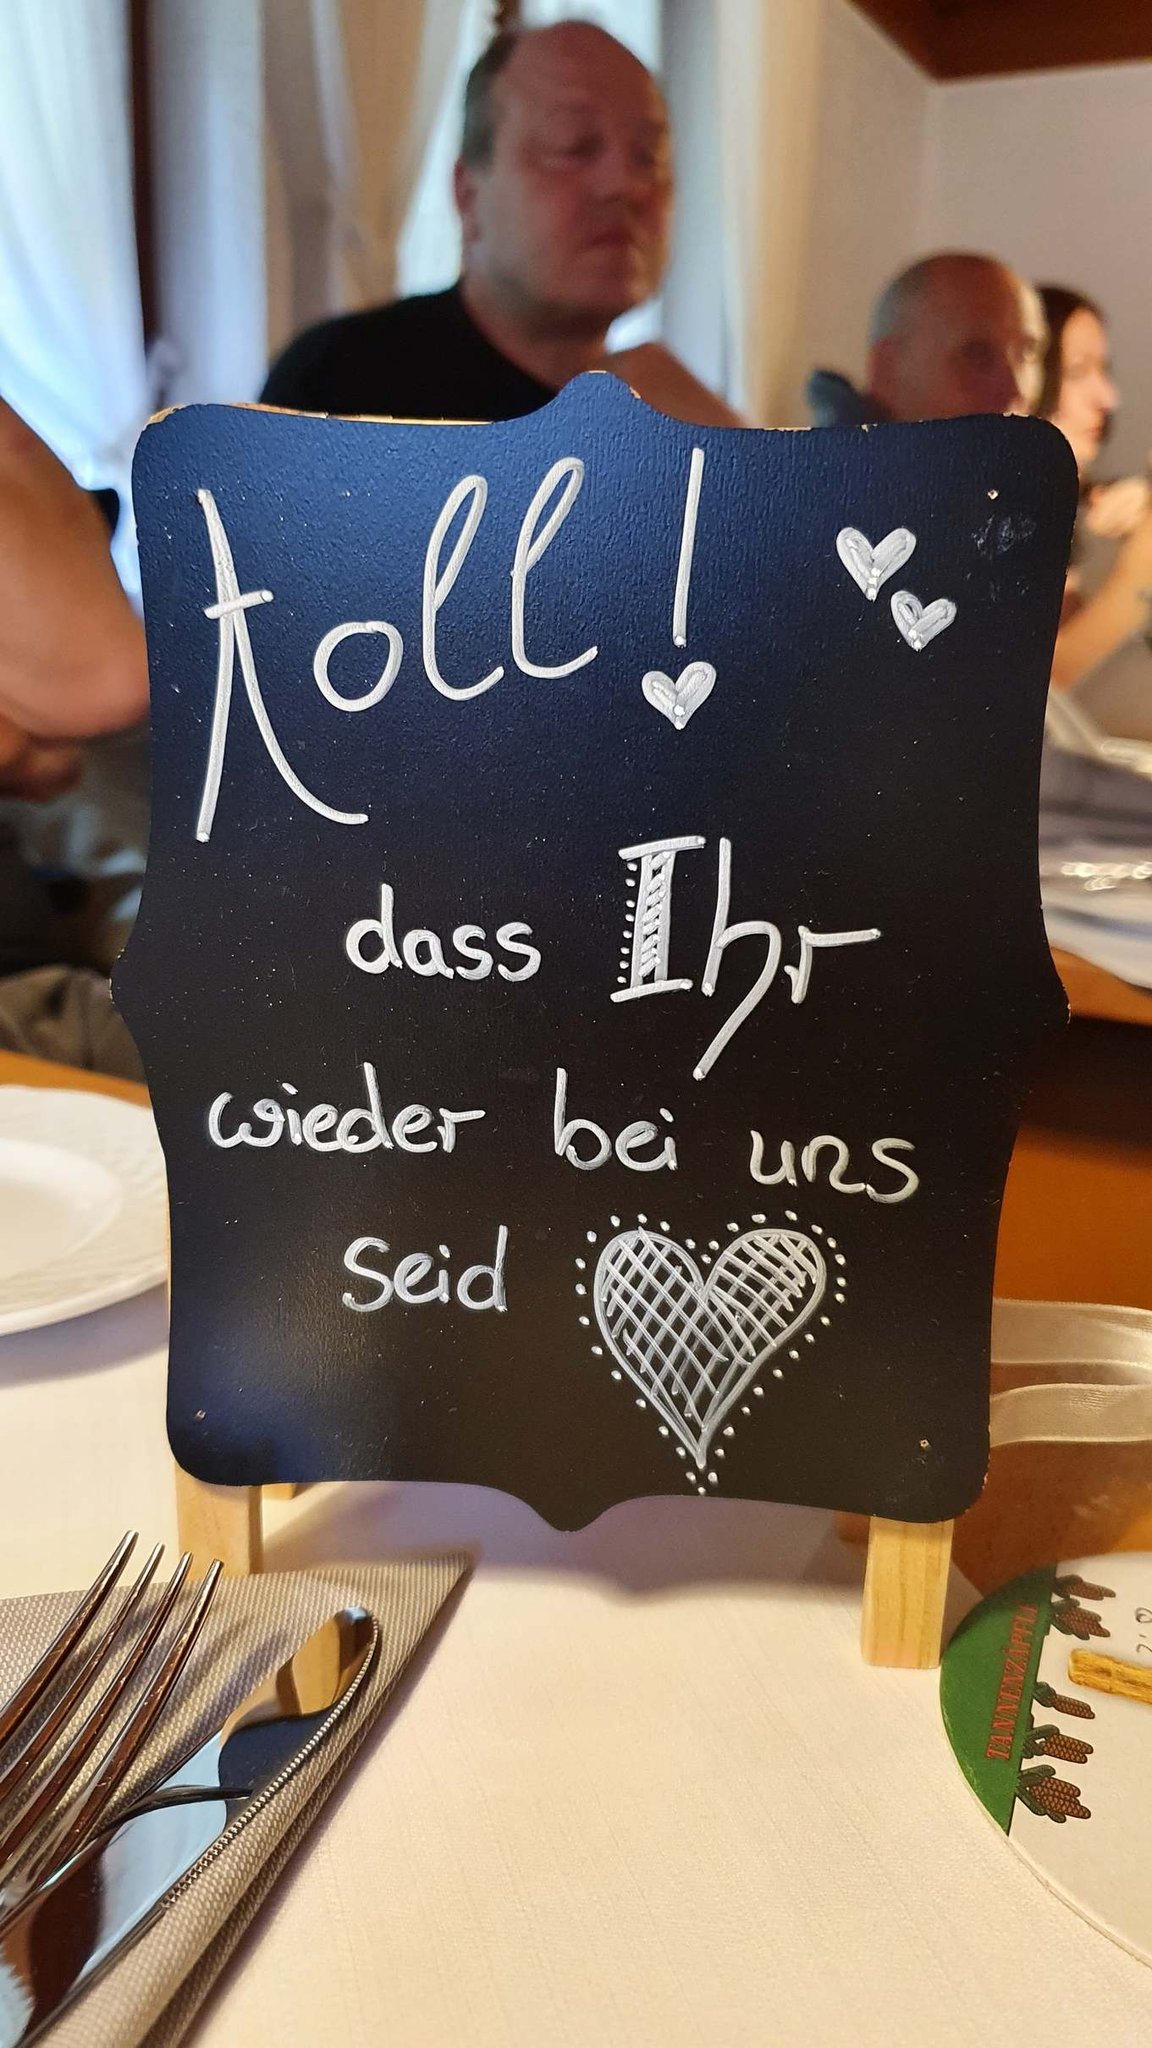 toll!
dass Ihr
wieder bei uns
seid
TANNENZÄPFLE